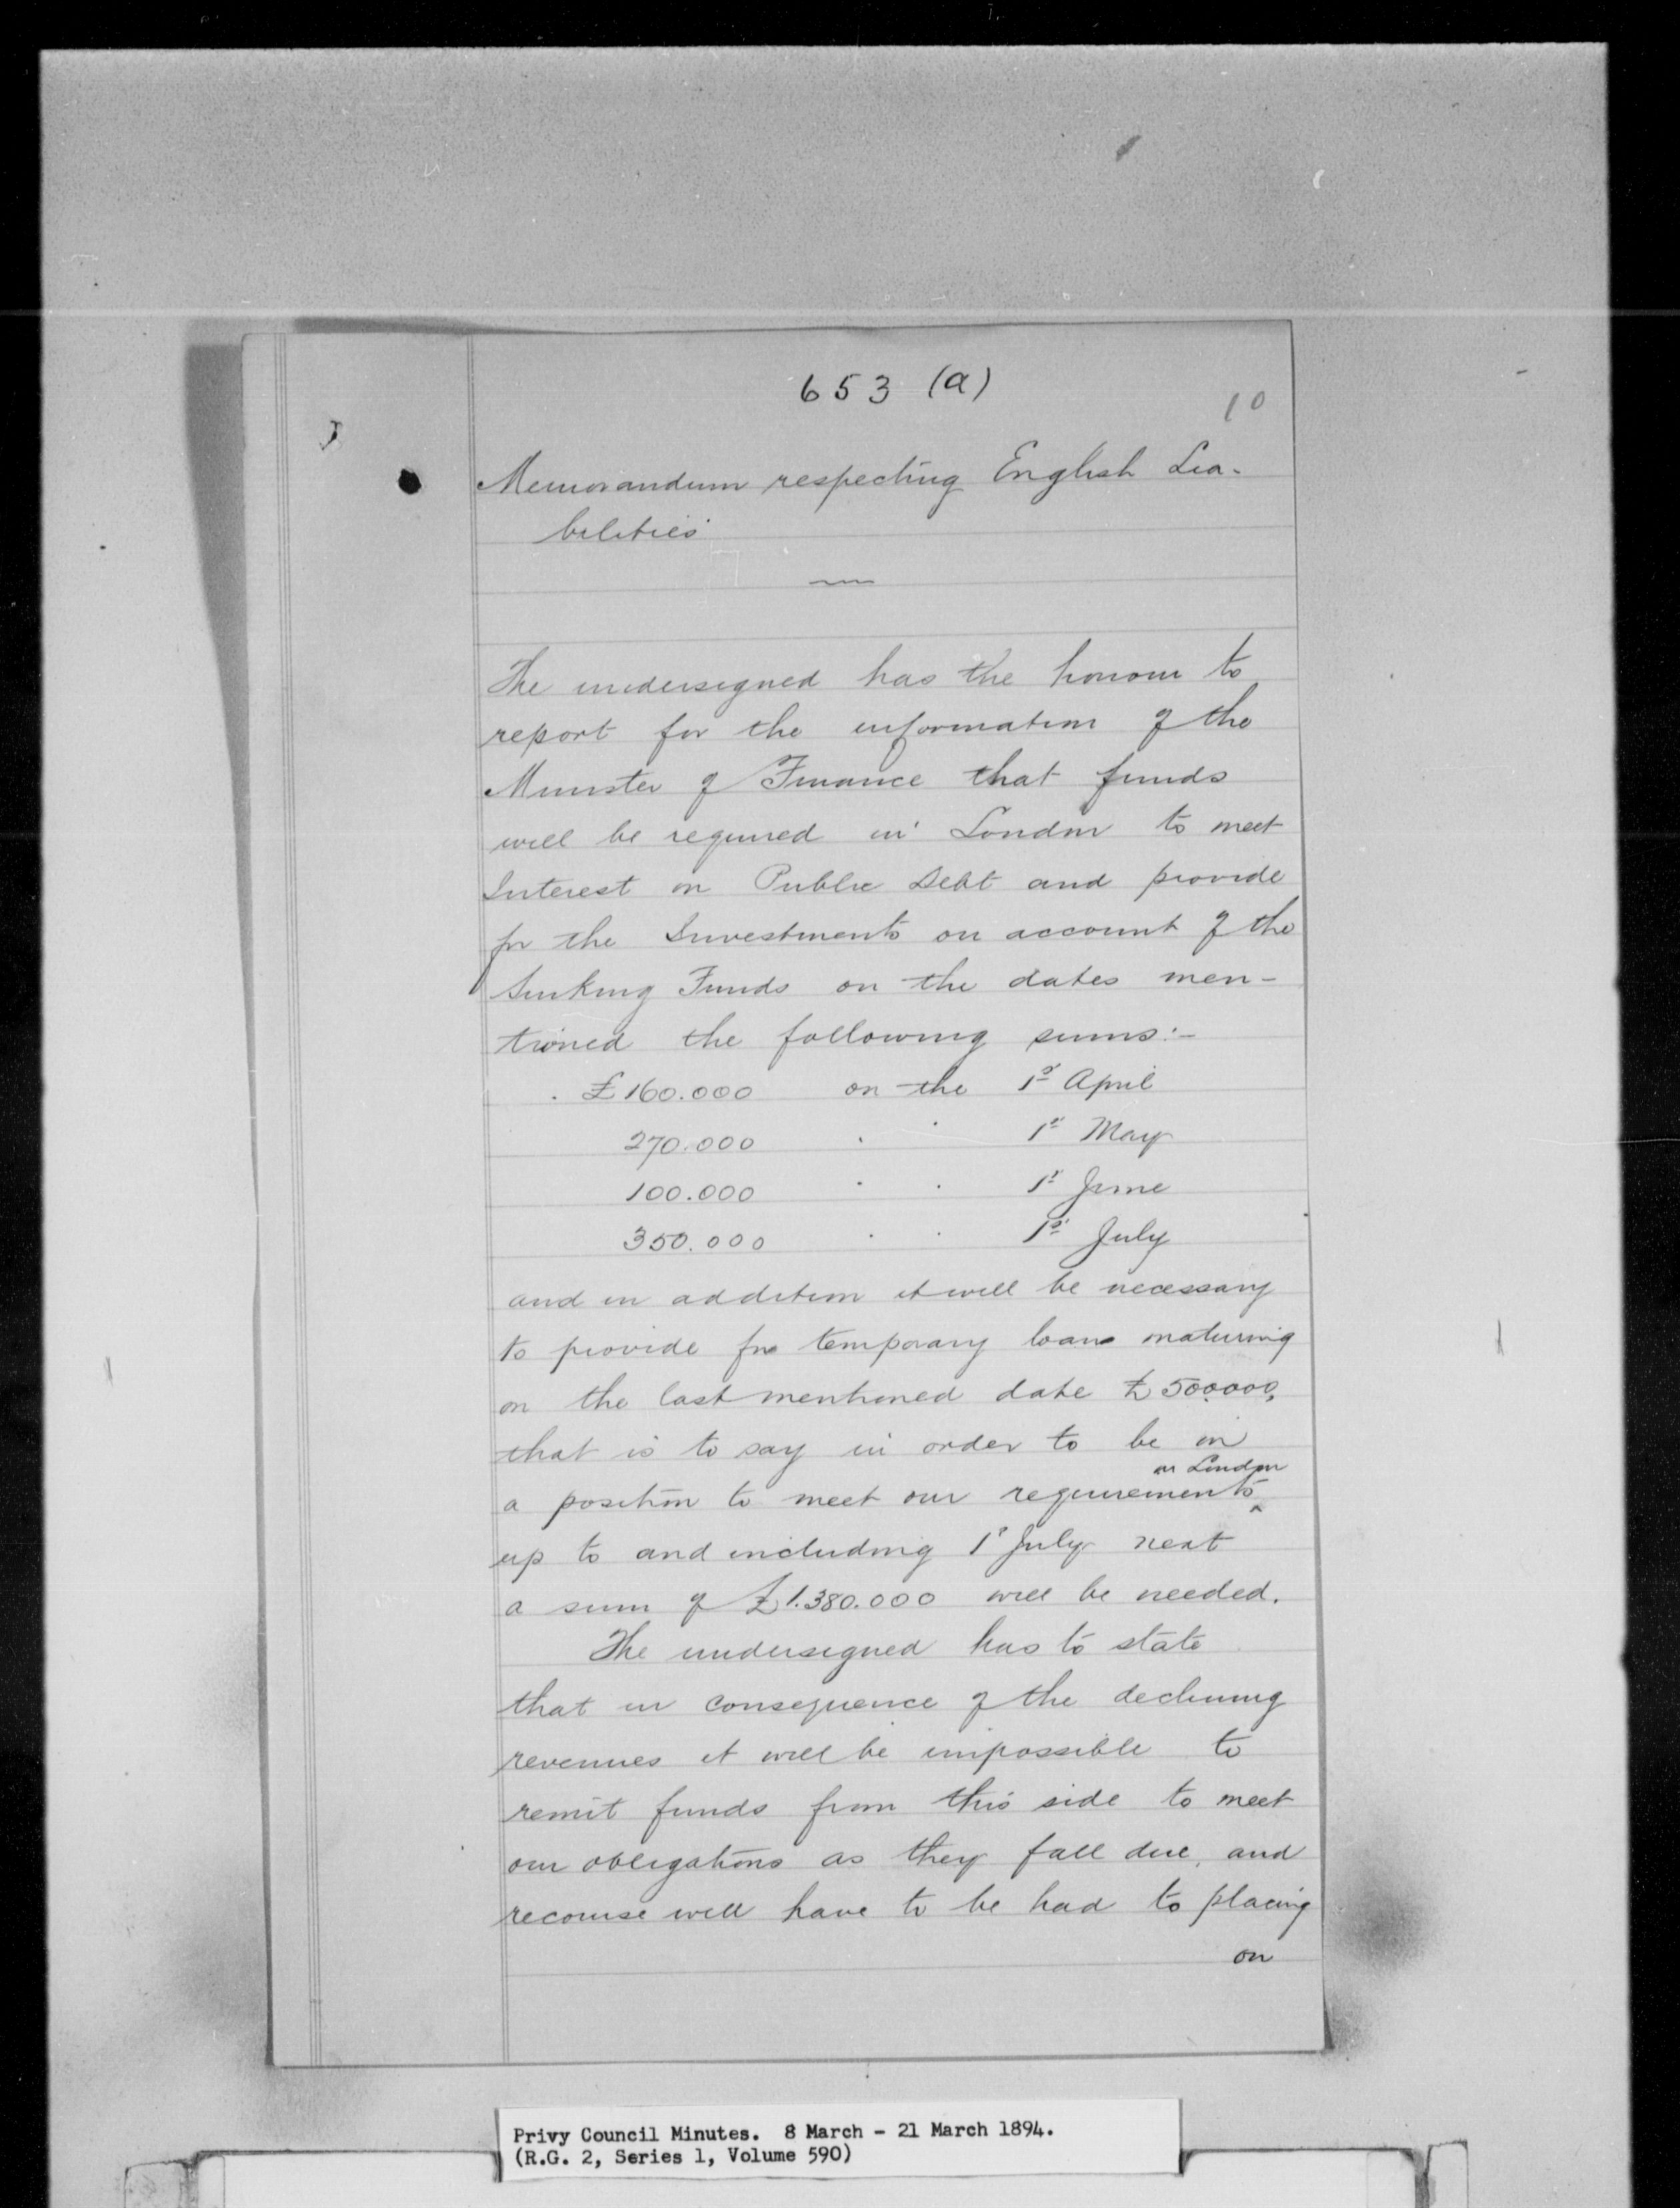 653 (a)
10
Memorandum respecting English Lia-
bilities
The undersigned has the honour to
report for the information of the
Minister of Finance that funds
will be required in London to meet
Interest on Public Debt and provide
for the Investments on account of the
Sinking Funds on the dates men-
tioned the following sums:-
£160.000 on the 1st April
270.000 " " 1st May
100.000 " " 1st June
350.000 " " 1st July
and in addition it will be necessary
to provide for temporary loans maturing
on the last mentioned date £500.000,
that is to say in order to be in
in London
a position to meet our requirements ^
up to and including 1st July next
a sum of £1.380.000 will be needed.
The undersigned has to state
that in consequence of the declining
revenues it will be impossible to
remit funds from this side to meet
our obligations as they fall due, and
recourse will have to be had to placing
on
Privy Council Minutes. 8 March - 21 March 1894.
(R.G. 2, Series 1, Volume 590)